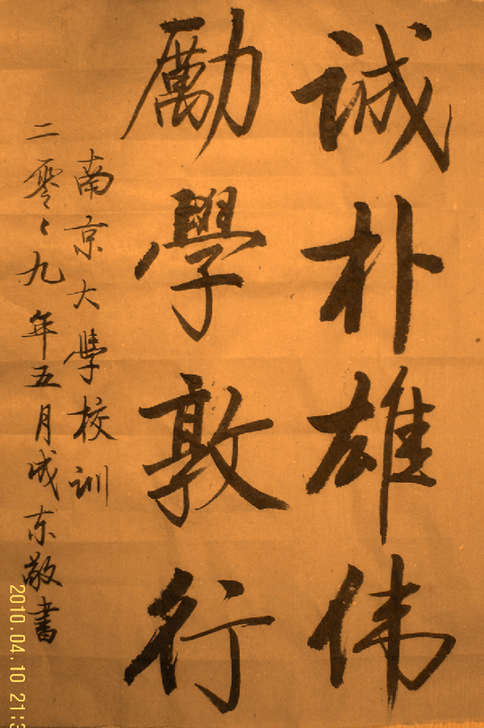 诚朴雄伟
勵學敦行
南京大學校训
二零零九年五月成东敬書
2010.04.10 21:3